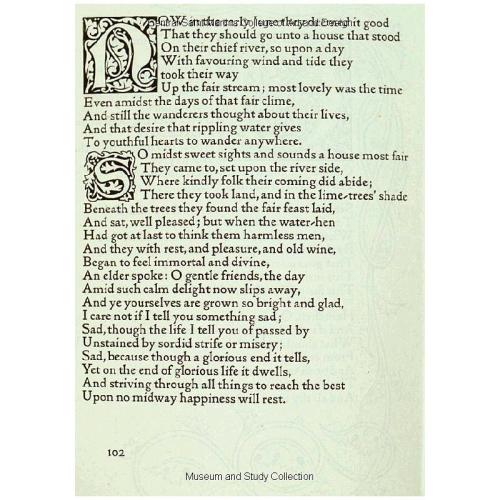 NOW in the early June they deemed it good
That they should go unto a house that stood
On their chief river, so upon a day
With favouring wind and tide they
took their way
Up the fair stream; most lovely was the time
Even amidst the days of that fair clime,
And still the wanderers thought about their lives,
And that desire that rippling water gives
To youthful hearts to wander anywhere.
SO midst sweet sights and sounds a house most fair
They came to, set upon the river side,
Where kindly folk their coming did abide;
There they took land, and in the lime-trees' shade
Beneath the trees they found the fair feast laid,
And sat, well pleased; but when the water-hen
Had got at last to think them harmless men,
And they with rest, and pleasure, and old wine,
Began to feel immortal and divine,
An elder spoke: O gentle friends, the day
Amid such calm delight now slips away,
And ye yourselves are grown so bright and glad,
I care not if I tell you something sad;
Sad, though the life I tell you of passed by
Unstained by sordid strife or misery;
Sad, because though a glorious end it tells,
Yet on the end of glorious life it dwells,
And striving through all things to reach the best
Upon no midway happiness will rest.
102
Museum and Study Collection